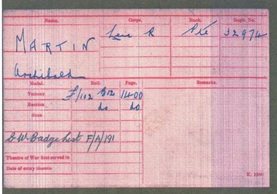 Name. Corps. Rank. Regtl. No.
MARTIN Linc R Pte 32974
Archibald
Medal. Roll. Page. Remarks.
Victory F/112 B12 1400
British do do
Star
S.W. Badge List F/A/191
Theatre of War first served in
Date of entry therein
K. 1380